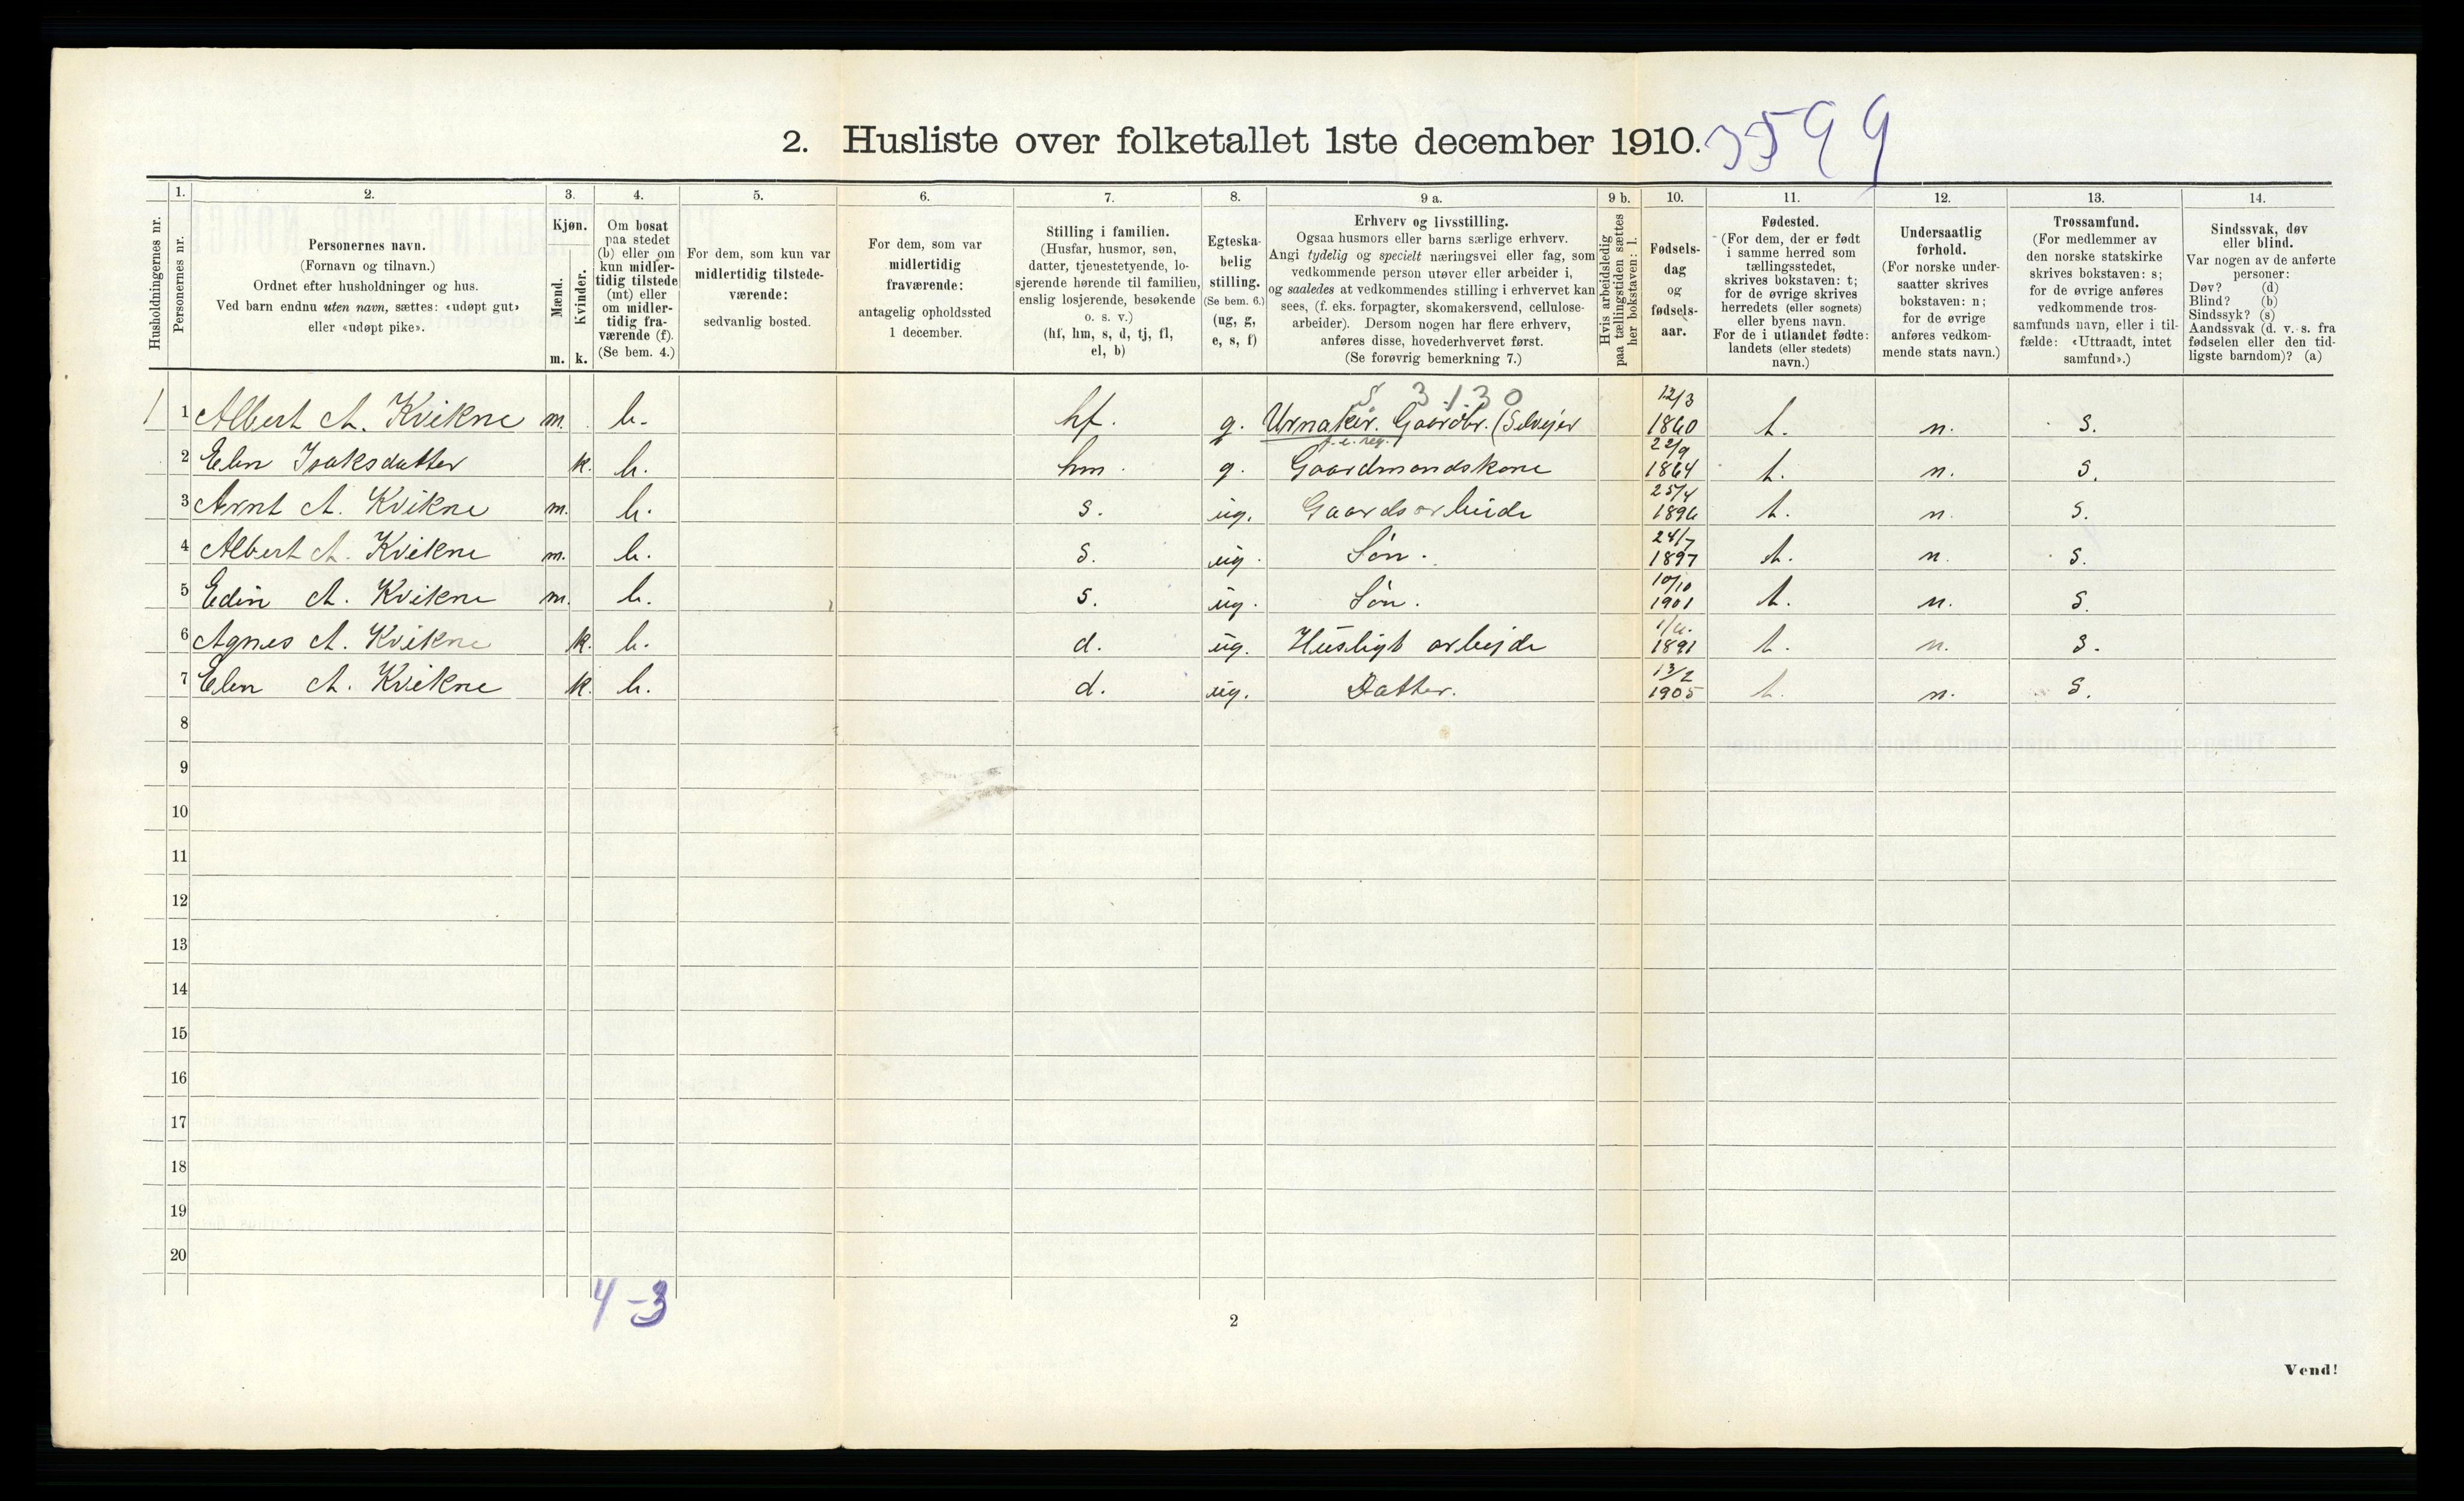 2. Husliste over folketallet 1ste december 1910. 3599
1. 2. 3. 4. 5. 6. 7. 8. 9 a. 9 b. 10. 11. 12. 13. 14.
Husholdningernes nr.
Personernes nr.
Personernes navn.
(Fornavn og tilnavn.)
Ordnet efter husholdninger og hus.
Ved barn endnu uten navn, sættes: «udøpt gut»
eller «udøpt pike».
Kjøn.
Mænd.
Kvinder.
m. k.
Om bosat
paa stedet
(b) eller om
kun midler-
tidig tilstede
(mt) eller
om midler-
tidig fra-
værende (f).
(Se bem. 4.)
For dem, som kun var
midlertidig tilstede-
værende:
sedvanlig bosted.
For dem, som var
midlertidig
fraværende:
antagelig opholdssted
1 december.
Stilling i familien.
(Husfar, husmor, søn,
datter, tjenestetyende, lo-
sjerende hørende til familien,
enslig losjerende, besøkende
o. s. v.)
(hf, hm, s, d, tj, fl,
el, b)
Egteska-
belig
stilling.
(Se bem. 6.)
(ug, g,
e, s, f)
Erhverv og livsstilling.
Ogsaa husmors eller barns særlige erhverv.
Angi tydelig og specielt næringsvei eller fag, som
vedkommende person utøver eller arbeider i,
og saaledes at vedkommendes stilling i erhvervet kan
sees, (f. eks. forpagter, skomakersvend, cellulose-
arbeider). Dersom nogen har flere erhverv,
anføres disse, hovederhvervet først.
(Se forøvrig bemerkning 7.)
Hvis arbeidsledig
paa tællingstiden sættes
her bokstaven: l.
Fødsels-
dag
og
fødsels-
aar.
Fødested.
(For dem, der er født
i samme herred som
tællingsstedet,
skrives bokstaven: t;
for de øvrige skrives
herredets (eller sognets)
eller byens navn.
For de i utlandet fødte:
landets (eller stedets)
navn.)
Undersaatlig
forhold.
(For norske under-
saatter skrives
bokstaven: n;
for de øvrige
anføres vedkom-
mende stats navn.)
Trossamfund.
(For medlemmer av
den norske statskirke
skrives bokstaven: s;
for de øvrige anføres
vedkommende tros-
samfunds navn, eller i til-
fælde: «Uttraadt, intet
samfund».)
Sindssvak, døv
eller blind.
Var nogen av de anførte
personer:
Døv? (d)
Blind? (b)
Sindssyk? (s)
Aandssvak (d. v. s. fra
fødselen eller den tid-
ligste barndom)? (a)
3.1.30 12/3
1 1 Albert A. Kvikne m. b. hf. g. Urmaker. Gaardbr. (Selvejer 1860 t. n. s.
22/9
2 Elen Isaksdatter k. b. hm. g. Gaardmandskone 1864 t. n. s.
25/4
3 Arnt A. Kvikne m. b. s. ug. Gaardsarbeide 1896 t. n. s.
24/7
4 Albert A. Kvikne m. b. s. ug. Søn. 1897 t. n. s.
10/10
5 Edin A. Kvikne m. b. s. ug. Søn. 1901 t. n. s.
6 Agnes A. Kvikne k. b. d. ug. Husligt arbejde 1891 t. n. s.
13/2
7 Elen A. Kvikne k. b. d. ug. Datter. 1905 t. n. s.
8
9
10
11
12
13
14
15
16
17
18
19
20
4-3
2
Vend!